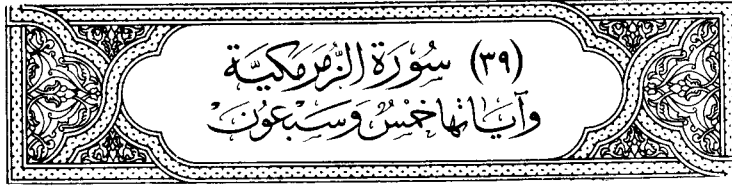 (٣٩) سُورَة الزُّمَر مَكيَّة
وَآيَاتهَا خمسٌ وَسَبْعُونَ